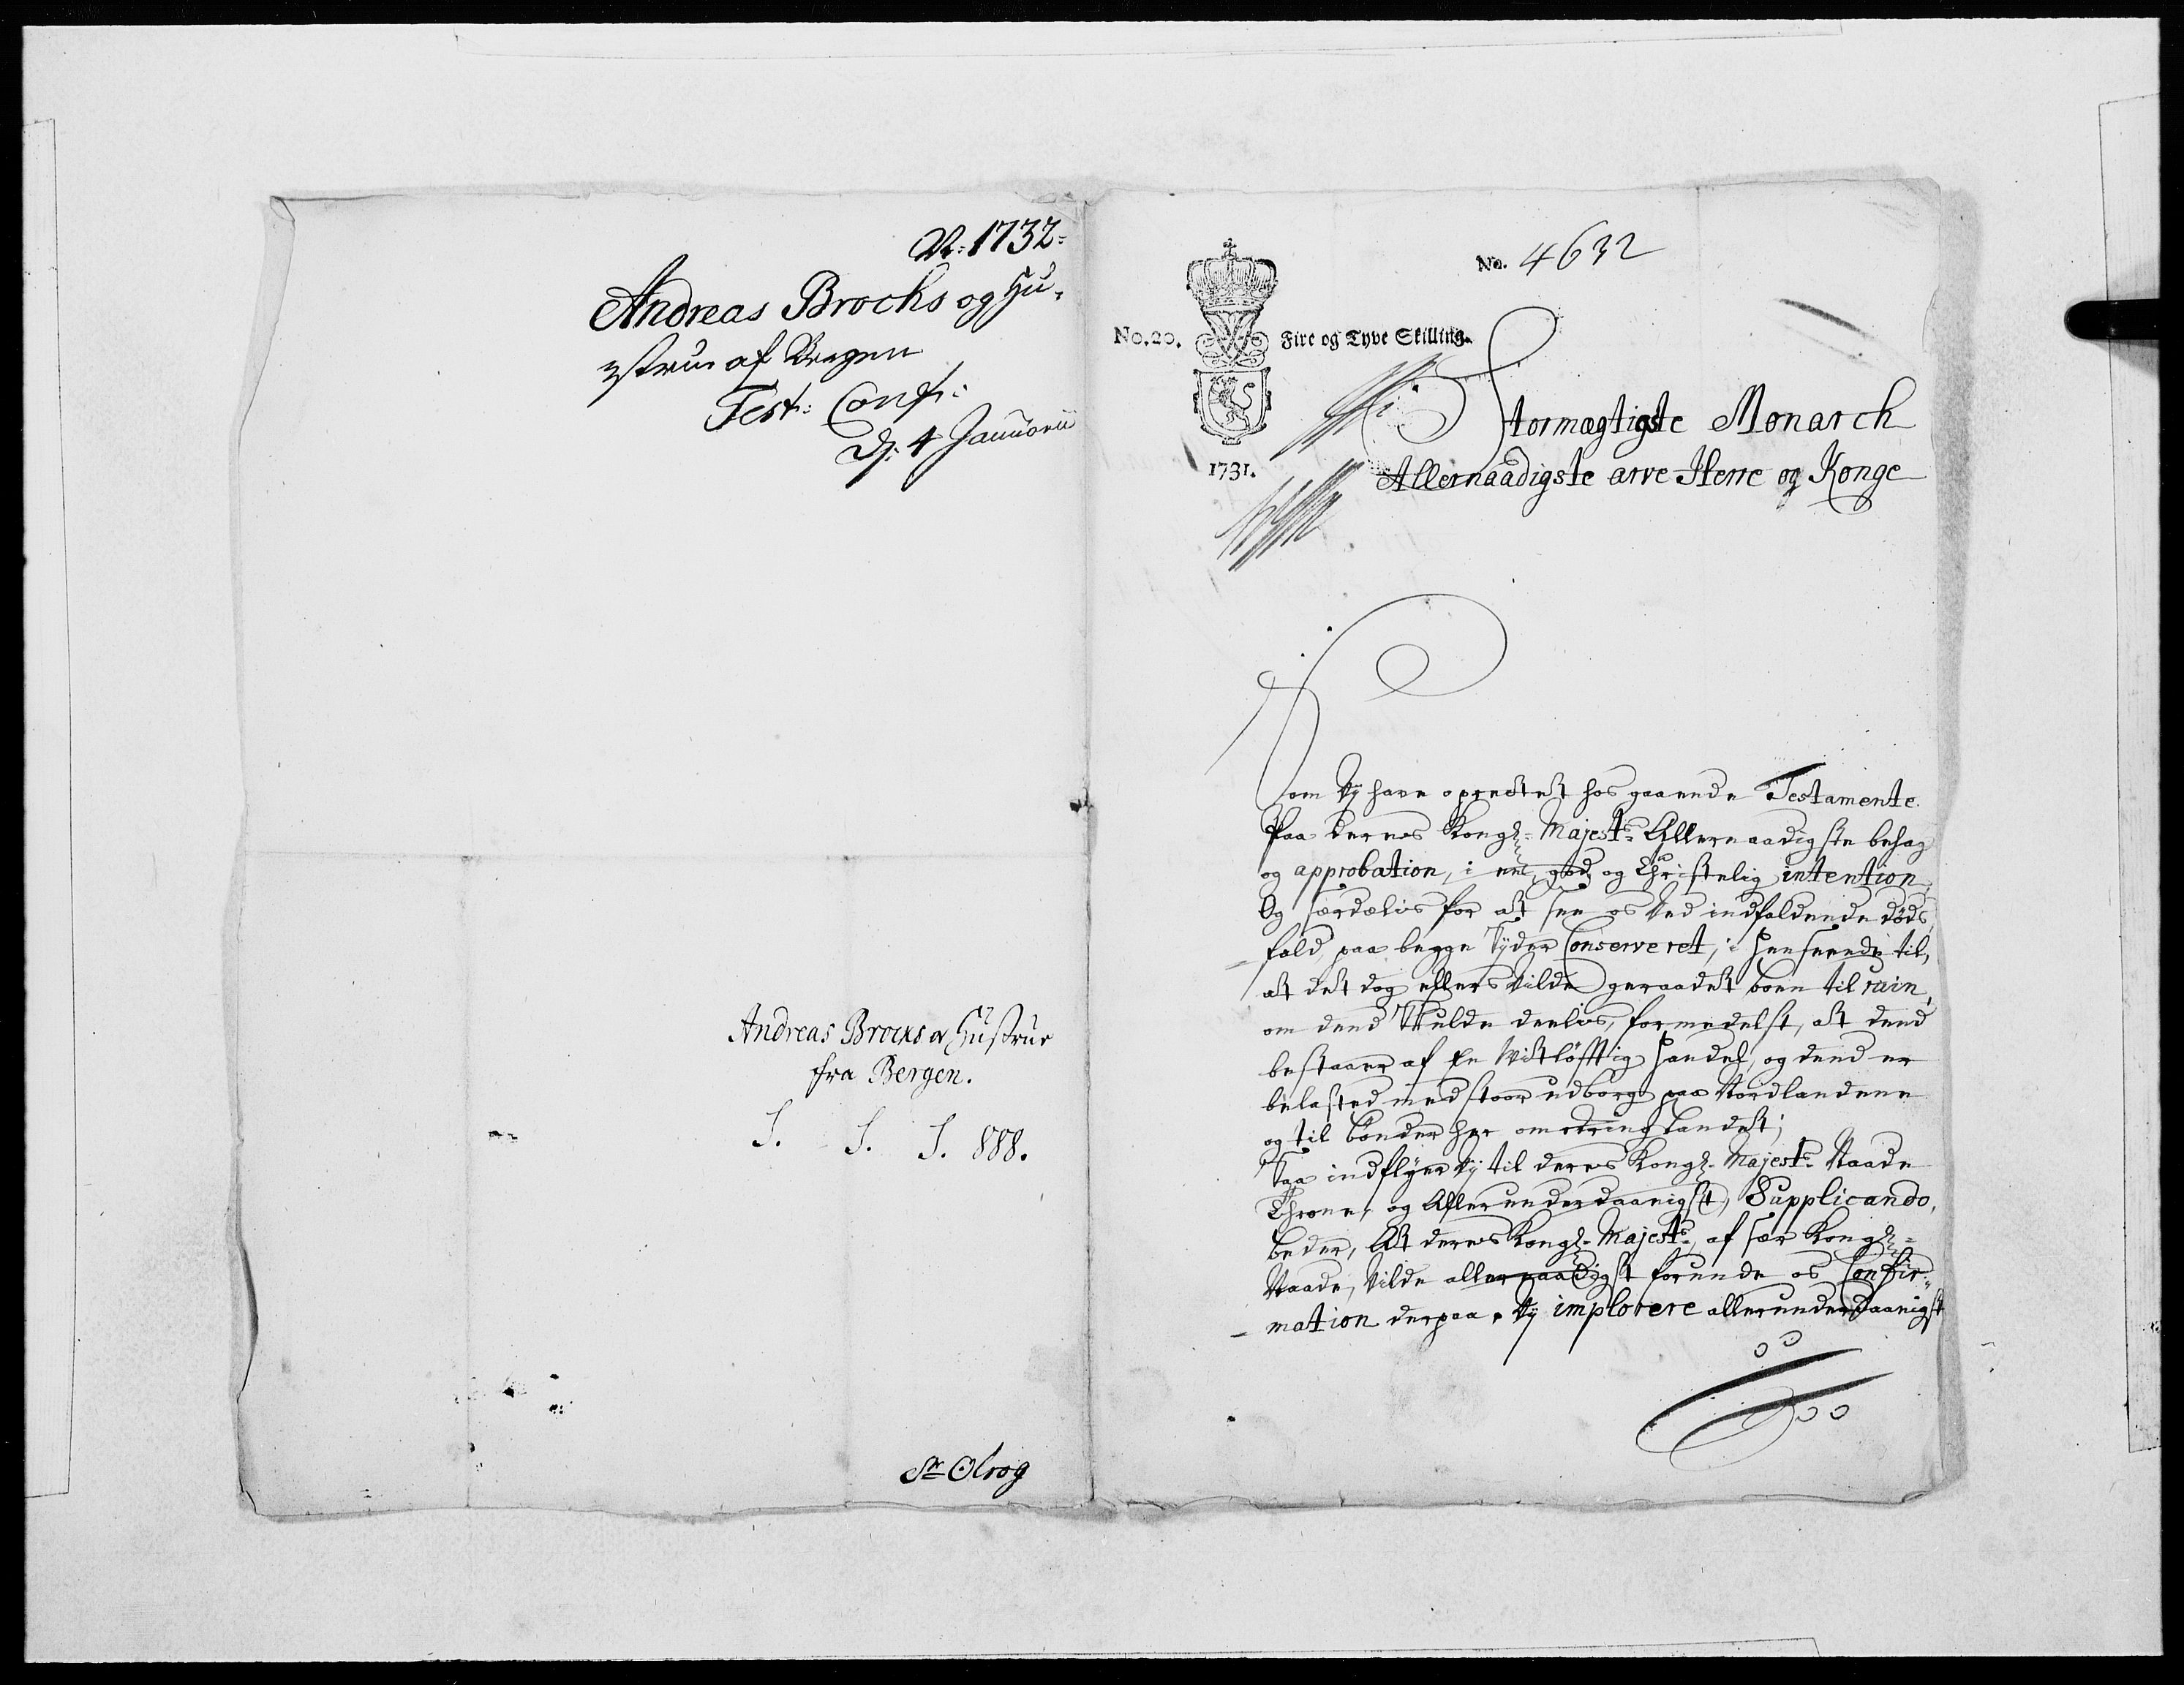 Ao: 1732.
Andreas Brochs og Hu-
strus af Bergen
Test: Conf:
D: 4 Januarii
Andreas Brocks og Hustrue
fra Bergen.
S. S. S. 888.
Sr Olrog
No. 4632
No. 20. Fire og Tyve Skilling.
1731.
Stormægtigste Monarch
Allernaadigste arve-Herre og Konge
Som Vij have oprettet hos gaaende Testamente
Paa deres Kongl. Majest: Allernaadigste behag
og approbation, i een god og Christelig intention,
Og særdelis for at see os Ved indfaldende døds
fald, paa begge Sijder Conserveret, i henseende til,
at det dog ellers Vilde geraadet boen til ruin,
om dend Skulde deelis, formedelst, at dend
bestaaer af En Vitløfftig handel, og dend er
belasted med stoor udborg paa Nordlandene
og til bønder her omkring Landet;
Saa indflyer Vij til deres Kongl. Majest: Naade
Throne, og Allerunderdaanigst, Supplicando,
beder, At deres Kongl. Majest:, af sær Kongl.
Naade, Vilde allernaadigst forunde os Confir-
mation derpaa. Vij implorere allerunderdaanigst